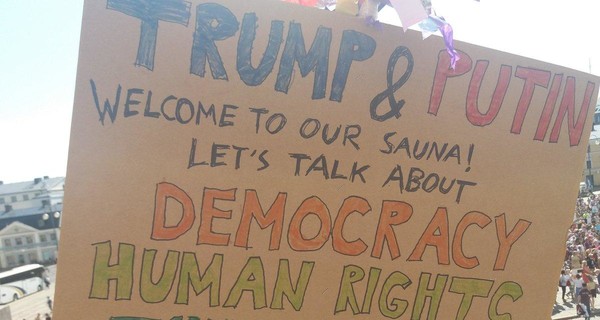 TRUMP & PUTIN
WELCOME TO OUR SAUNA!
LET'S TALK ABOUT
DEMOCRACY
HUMAN RIGHTS